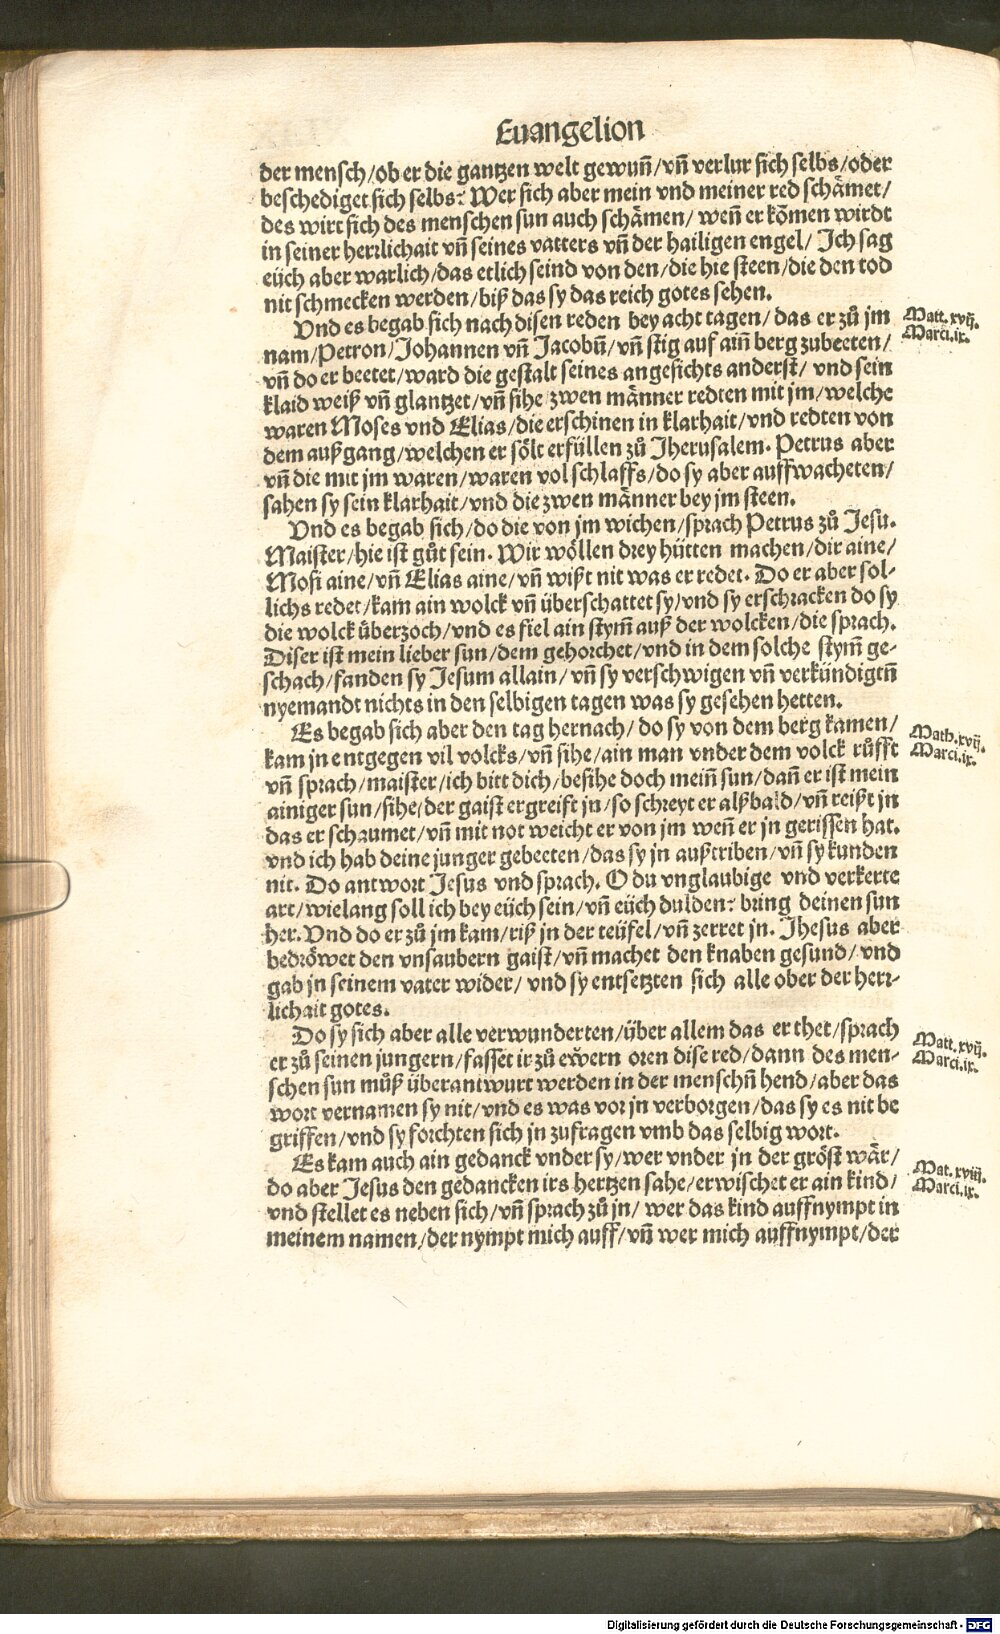 Euangelion
der mensch/ob er die gantzen welt gewuñ/vñ verlur sich selbs/oder
beschediget sich selbs? Wer sich aber mein vnd meiner red schämet/
des wirt sich des menschen sun auch schämen/ weñ er kõmen wirdt
in seiner herrlichait vñ seines vatters vñ der hailigen engel/ Ich sag
eüch aber warlich/das etlich seind von den/die hie steen/die den tod
nit schmecken werden/biß das sy das reich gotes sehen.
Vnd es begab sich nach disen reden bey acht tagen/ das er zů jm
nam/Petron/Johannen vñ Jacobũ/vñ stig auf ainẽ berg zubeeten/
vñ do er beetet/ward die gestalt seines angesichts anderst/ vnd sein
klaid weiß vñ glantzet/vñ sihe zwen männer redten mit jm/welche
waren Moses vnd Elias/die erschinen in klarhait/vnd redten von
dem außgang/welchen er sölt erfüllen zů Jherusalem. Petrus aber
vñ die mit jm waren/waren vol schlaffs/do sy aber auffwacheten/
sahen sy sein klarhait/vnd die zwen männer bey jm steen.
Vnd es begab sich/do die von jm wichen/sprach Petrus zů Jesu.
Maister/hie ist gůt sein. Wir wöllen drey hütten machen/dir aine/
Mosi aine/vñ Elias aine/vñ wißt nit was er redet. Do er aber sol-
lichs redet/kam ain wolck vñ überschattet sy/vnd sy erschracken do sy
die wolck überzoch/vnd es fiel ain stym̃ auß der wolcken/die sprach.
Diser ist mein lieber sun/dem gehorchet/vnd in dem solche stym̃ ge-
schach/fanden sy Jesum allain/ vñ sy verschwigen vñ verkündigtñ
nyemandt nichts in den selbigen tagen was sy gesehen hetten.
Es begab sich aber den tag hernach/ do sy von dem berg kamen/
kam jn entgegen vil volcks/vñ sihe/ain man vnder dem volck růfft
vñ sprach/maister/ich bitt dich/besihe doch meinẽ sun/dañ er ist mein
ainiger sun/sihe/der gaist ergreift jn/so schreyt er alßbald/vñ reißt jn
das er schaumet/vñ mit not weicht er von jm weñ er jn gerissen hat.
vnd ich hab deine junger gebeeten/das sy jn außtriben/vñ sy kunden
nit. Do antwort Jesus vnd sprach. O du vnglaubige vnd verkerte
art/wielang soll ich bey eüch sein/vñ eüch dulden? bring deinen sun
her. Vnd do er zů jm kam/riß jn der teüfel/vñ zerret jn. Jhesus aber
bedröwet den vnsaubern gaist/vñ machet den knaben gesund/vnd
gab jn seinem vater wider/ vnd sy entsetzten sich alle ober der herr-
lichait gotes.
Do sy sich aber alle verwunderten/über allem das er thet/sprach
er zů seinen jungern/fasset ir zů ewern oren dise red/dann des men-
schen sun můß überantwurt werden in der menschñ hend/aber das
wort vernamen sy nit/vnd es was vor jn verborgen/das sy es nit be
griffen/vnd sy forchten sich jn zufragen vmb das selbig wort.
Es kam auch ain gedanck vnder sy/wer vnder jn der gröst wär/
do aber Jesus den gedancken irs hertzen sahe/erwischet er ain kind/
vnd stellet es neben sich/vñ sprach zů jn/ wer das kind auffnympt in
meinem namen/der nympt mich auff/vñ wer mich auffnympt/der
Matt. xvij.
Marci. ix.
Math. xvij.
Marci. ix.
Matt. xvij.
Marci. ix.
Mat. xviij.
Marci. ix.
Digitalisierung gefördert durch die Deutsche Forschungsgemeinschaft - DFG